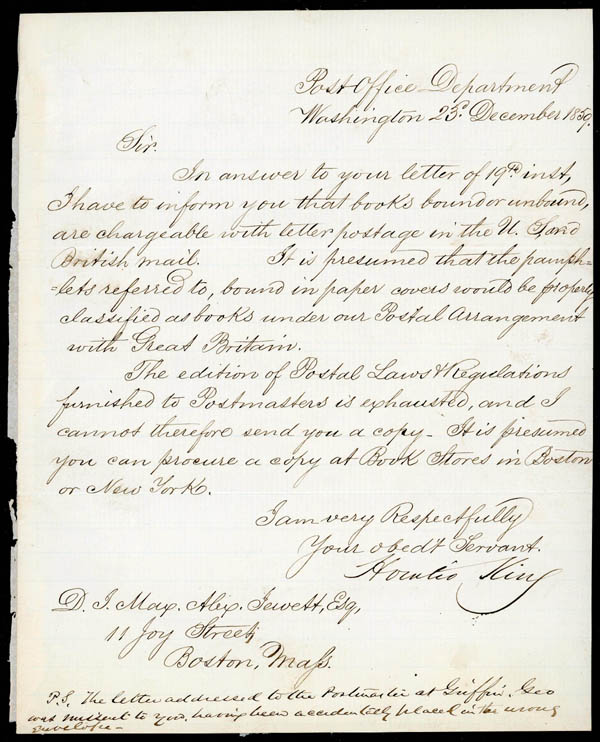 Post Office Department
Washington 23d. December 1859.
Sir.
In answer to your letter of 19th inst,
I have to inform you that books bound or unbound,
are chargeable with letter postage in the U. S. and
British mail. It is presumed that the pamph=
=lets referred to, bound in paper covers would be properly
classified as books under our Postal Arrangement
with Great Britain.
The edition of Postal Laws & Regulations
furnished to Postmasters is exhausted, and I
cannot therefore send you a copy - It is presumed
you can procure a copy at Book Stores in Boston
or New York.
I am very Respectfully
Your obedt Servant.
Horatio King
D. J. Max. Alex. Jewett, Esq,
11 Joy Street,
Boston, Mass.
P.S. The letter addressed to the Postmaster at Griffin, Geo
was missent to you, having been accidentally placed in the wrong
envelope -